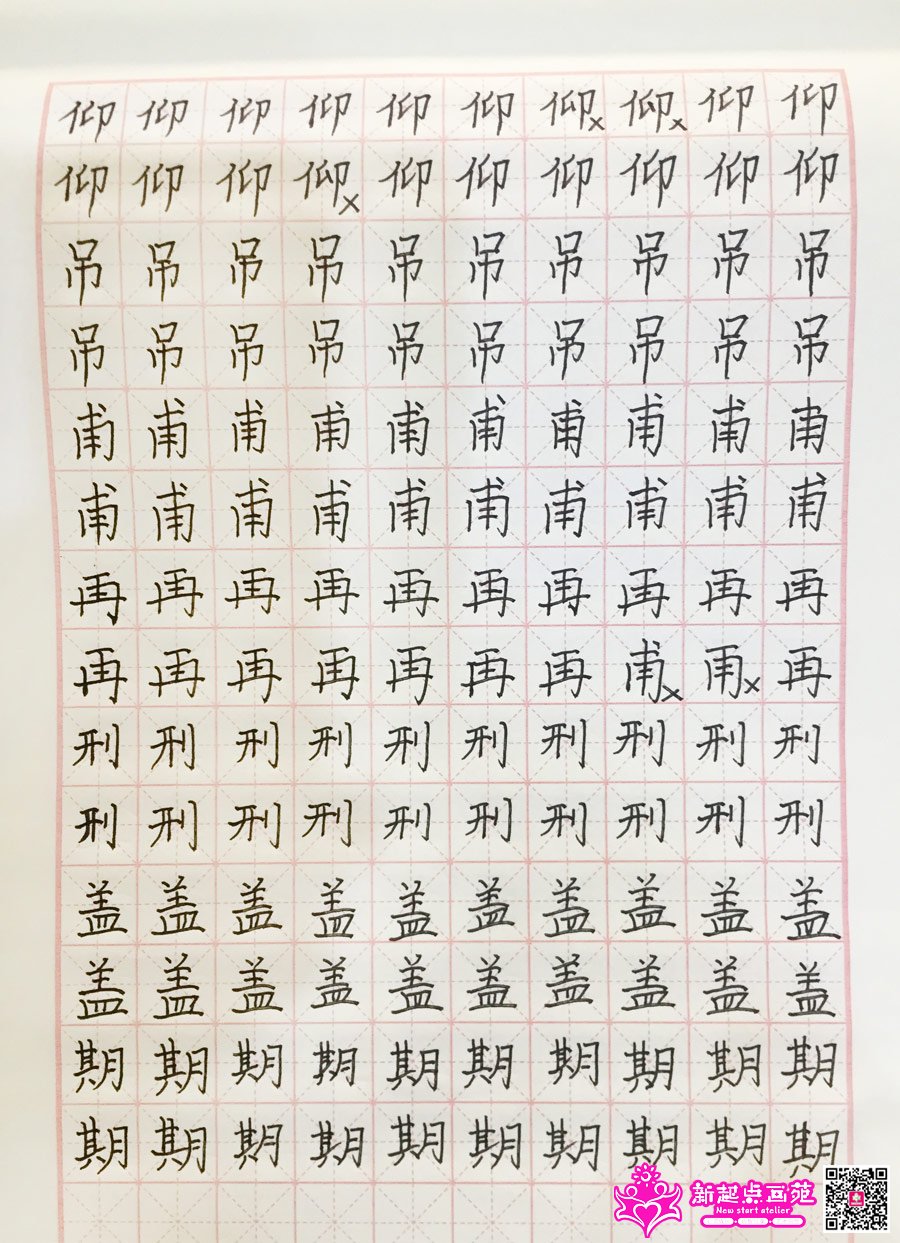 仰仰仰仰仰仰仰×仰×仰仰
仰仰仰仰×仰仰仰仰仰仰
吊吊吊吊吊吊吊吊吊吊
吊吊吊吊吊吊吊吊吊吊
甫甫甫甫甫甫甫甫甫甫
甫甫甫甫甫甫甫甫甫甫
再再再再再再再再再再
再再再再再再再甫×雨×再
刑刑刑刑刑刑刑刑刑刑
刑刑刑刑刑刑刑刑刑刑
盖盖盖盖盖盖盖盖盖盖
盖盖盖盖盖盖盖盖盖盖
期期期期期期期期期期
期期期期期期期期期期
新起点画苑
New start atelier